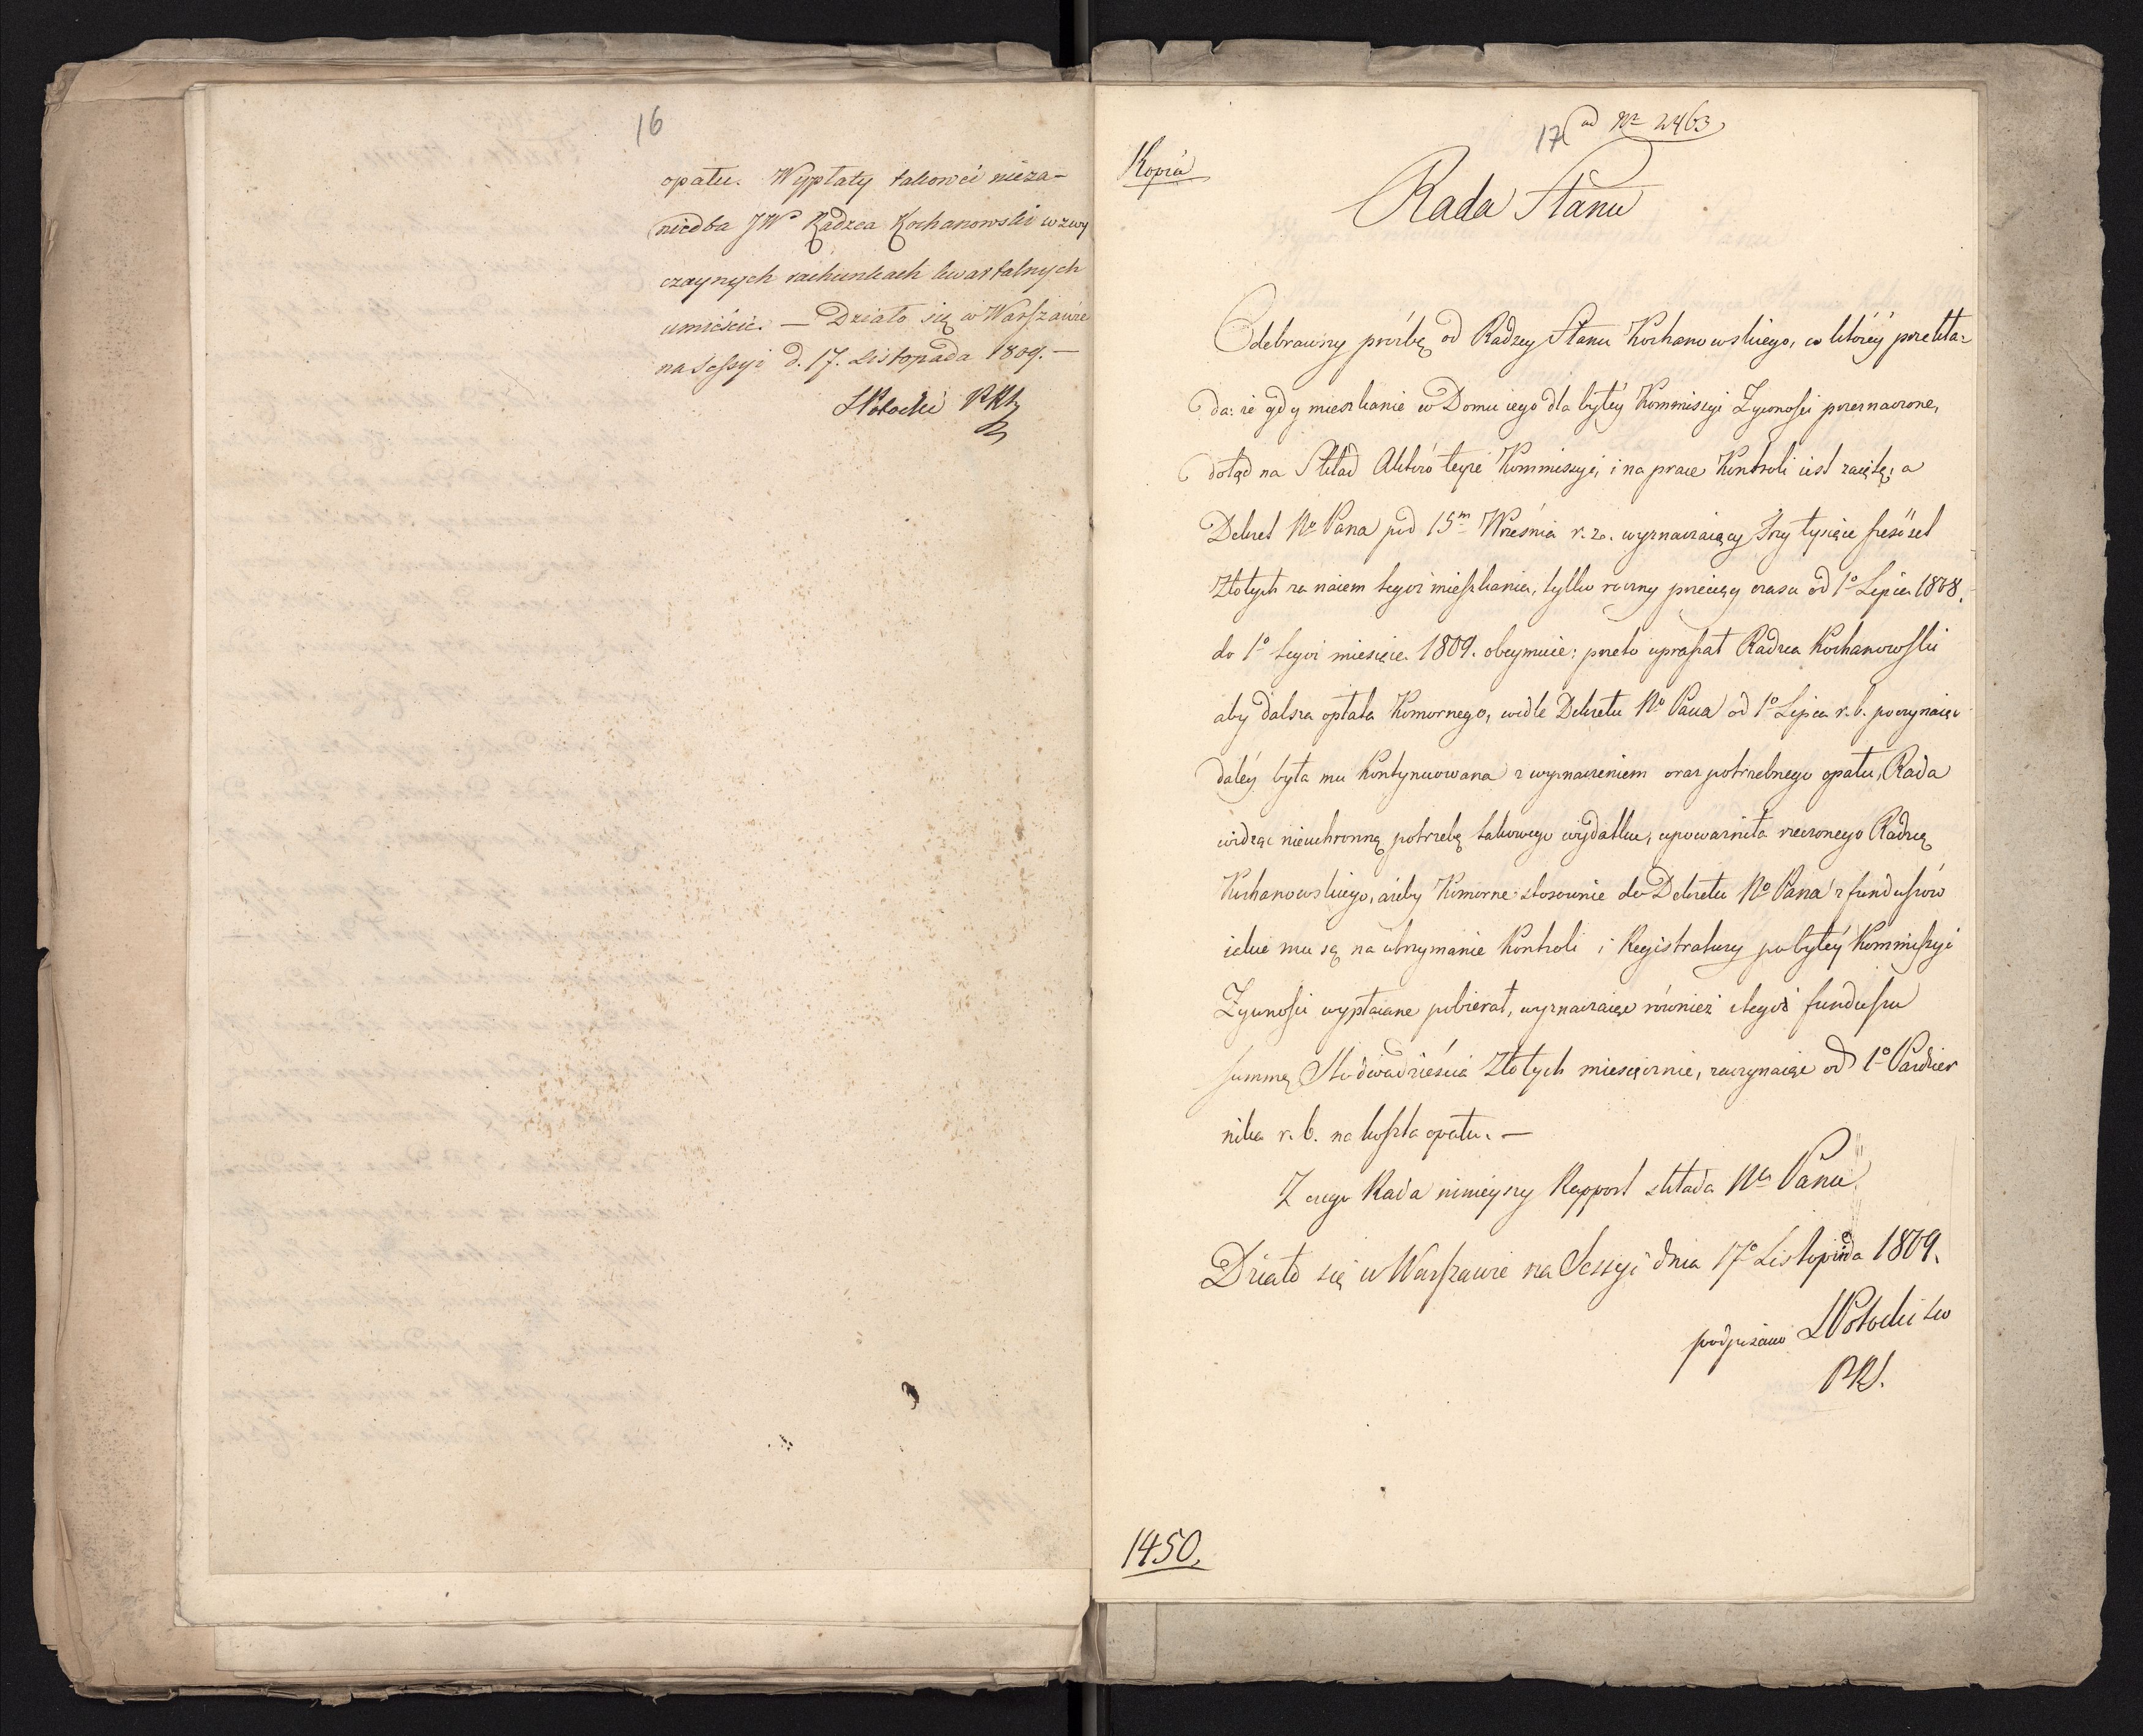 16
opału. Wypłaty takowéi nieza=
niedba JW° Radzca Kochanowski w zwy
czaynych rachunkach kwartalnych
umieścić. — Działo się w Warszawie
na Sessyi d. 17. Listopada 1809. —
SPotocki PRS
17
ad Nr 2463
Kopia
Rada Stanu
Odebrawszy prośbę od Radzcy Stanu Kochanowskiego, w któréy przekła=
da: że gdy mieszkanie w Domu iego dla byłéy Kommissyi Żywności przeznaczone,
dotąd na Skład Aktów teyże Kommissyi, i na prace Kontroli iest zaięte; a
Dekret No Pana pod 15m Września r. z. wyznaczaiący Trzy tysiące sześćset
Złotych za naiem tegoż mieszkania, tylko roczny przeciąg czasu od 1° Lipca 1808.
do 1° tegoż miesiąca 1809. obeymuie: przeto upraszał Radzca Kochanowski
aby dalsza opłata Komornego, wedle Dekretu No Pana od 1° Lipca r. b. poczynaiąc
daléy była mu kontynuowana z wyznaczeniem oraz potrzebnego opału, Rada
widząc nieuchronną potrzebę takowego wydatku, upoważniła rzeczonego Radzcę
Kochanowskiego, ażeby Komorne stosownie do Dekretu No Pana z funduszów
iakie mu są na utrzymanie Kontroli i Registratury po byłéy Kommissyi
Żywności wypłacane pobierał, wyznaczaiąc również z tegoż funduszu
summę Sto dwadzieścia Złotych miesięcznie, zaczynaiąc od 1° Paździer
nika r. b. na koszta opału. —
Z czego Rada ninieyszy Rapport składa No Panu
Działo się w Warszawie na Sessyi dnia 17° Listopada 1809.
podpisano SPotocki
PRS.
1450.